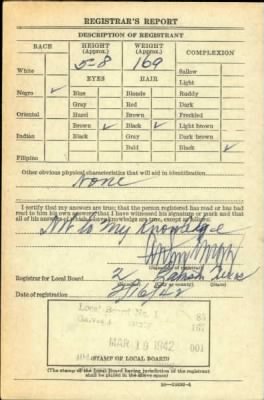 REGISTRAR'S REPORT
DESCRIPTION OF REGISTRANT
RACE HEIGHT (Approx.) WEIGHT (Approx.) COMPLEXION
5-8 169
White Sallow
EYES HAIR Light
Negro ✓ Blue Blonde Ruddy
Gray Red Dark
Oriental Hazel Brown Freckled
Brown ✓ Black ✓ Light brown
Indian Black Gray Dark brown
Bald Black ✓
Filipino
Other obvious physical characteristics that will aid in identification
None
I certify that my answers are true; that the person registered has read or has had
read to him his own answers; that I have witnessed his signature or mark and that
all of his answers of which I have knowledge are true, except as follows:
Not to my knowledge
Registrar for Local Board 2
Date of registration 2/16/42
Local Board No. 1 85
167
MAR 19 1942 001
(STAMP OF LOCAL BOARD)
(The stamp of the Local Board having jurisdiction of the registrant
shall be placed in the above space)